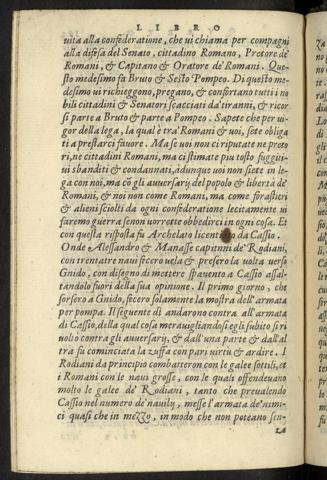 LIBRO
uita alla confederatione, che ui chiama per compagni
alla difesa del Senato, cittadino Romano, Pretore de'
Romani, & Capitano & Oratore de' Romani. Que-
sto medesimo fa Bruto & Sesto Pompeo. Di questo me-
desimo ui richieggono, pregano, & confortano tutti i no
bili cittadini & Senatori scacciati da' tiranni, & ricor
si parte a Bruto & parte a Pompeo. Sapete che per ui-
gor della lega, la qual è tra' Romani & uoi, sete obliga
ti a prestarci fauore. Ma se uoi non ci riputate ne preto
ri, ne cittadini Romani, ma ci stimate piu tosto fuggiti-
ui sbanditi & condannati, adunque uoi non siete in le-
ga con noi, ma cō gli auuersarij del popolo & libertà de'
Romani, & noi non come Romani, ma come forastieri
& alieni sciolti da ogni confederatione lecitamente ui
faremo guerra se non uorrete obbedirci in ogni cosa. Et
con questa risposta fu Archelao licentiato da Cassio.
Onde Alessandro & Manasse capitani de' Rodiani,
con trentatre naui fecero uela & presero la uolta uerso
Gnido, con disegno di mettere spauento a Cassio assal-
tandolo fuori della sua opinione. Il primo giorno, che
sorsero a Gnido, fecero solamente la mostra dell'armata
per pompa. Il seguente dì andarono contra all'armata
di Cassio, della qual cosa merauigliandosi egli subito si ri
uoltò contra gli auuersarij, & dall'una parte & dall'al
tra fu cominciata la zuffa con pari uirtù & ardire. I
Rodiani da principio combatteron con le galee sottili, et
i Romani con le naui grosse, con le quali offendeuano
molto le galee de' Rodiani, tanto che preualendo
Cassio nel numero de' nauily, messe l'armata de' nimi-
ci quasi che in mezzo, in modo che non poteano sen-
za